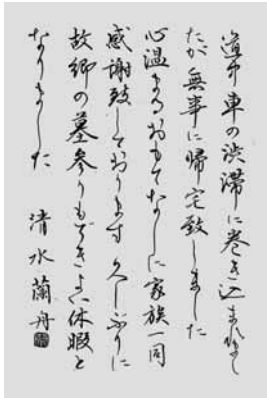 道中車の渋滞に巻き込まれまし
たが無事に帰宅致しました
心温まるおもてなしに家族一同
感謝致しております久しぶりに
故郷の墓参りもできよい休暇と
なりました
清水蘭舟